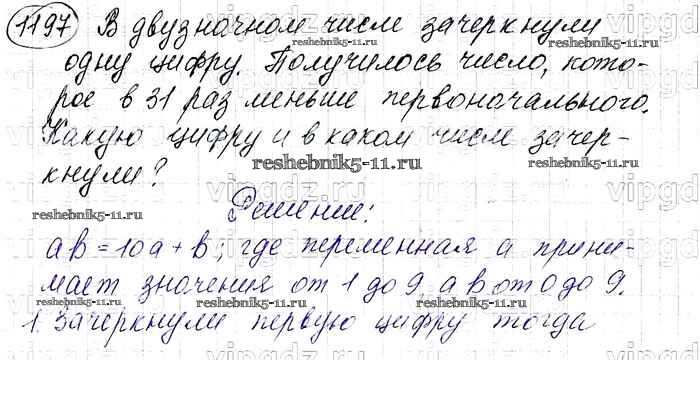 1197 В двузначном числе зачеркнули
одну цифру. Получилось число, кото-
рое в 31 раз меньше первоначального.
Какую цифру и в каком числе зачер-
кнули?
Решение:
ab = 10a + b; где переменная a прини-
мает значения от 1 до 9, а b от 0 до 9.
1. Зачеркнули первую цифру тогда
reshebnik5-11.ru
reshebnik5-11.ru
reshebnik5-11.ru
reshebnik5-11.ru
reshebnik5-11.ru
reshebnik5-11.ru
reshebnik5-11.ru
reshebnik5-11.ru